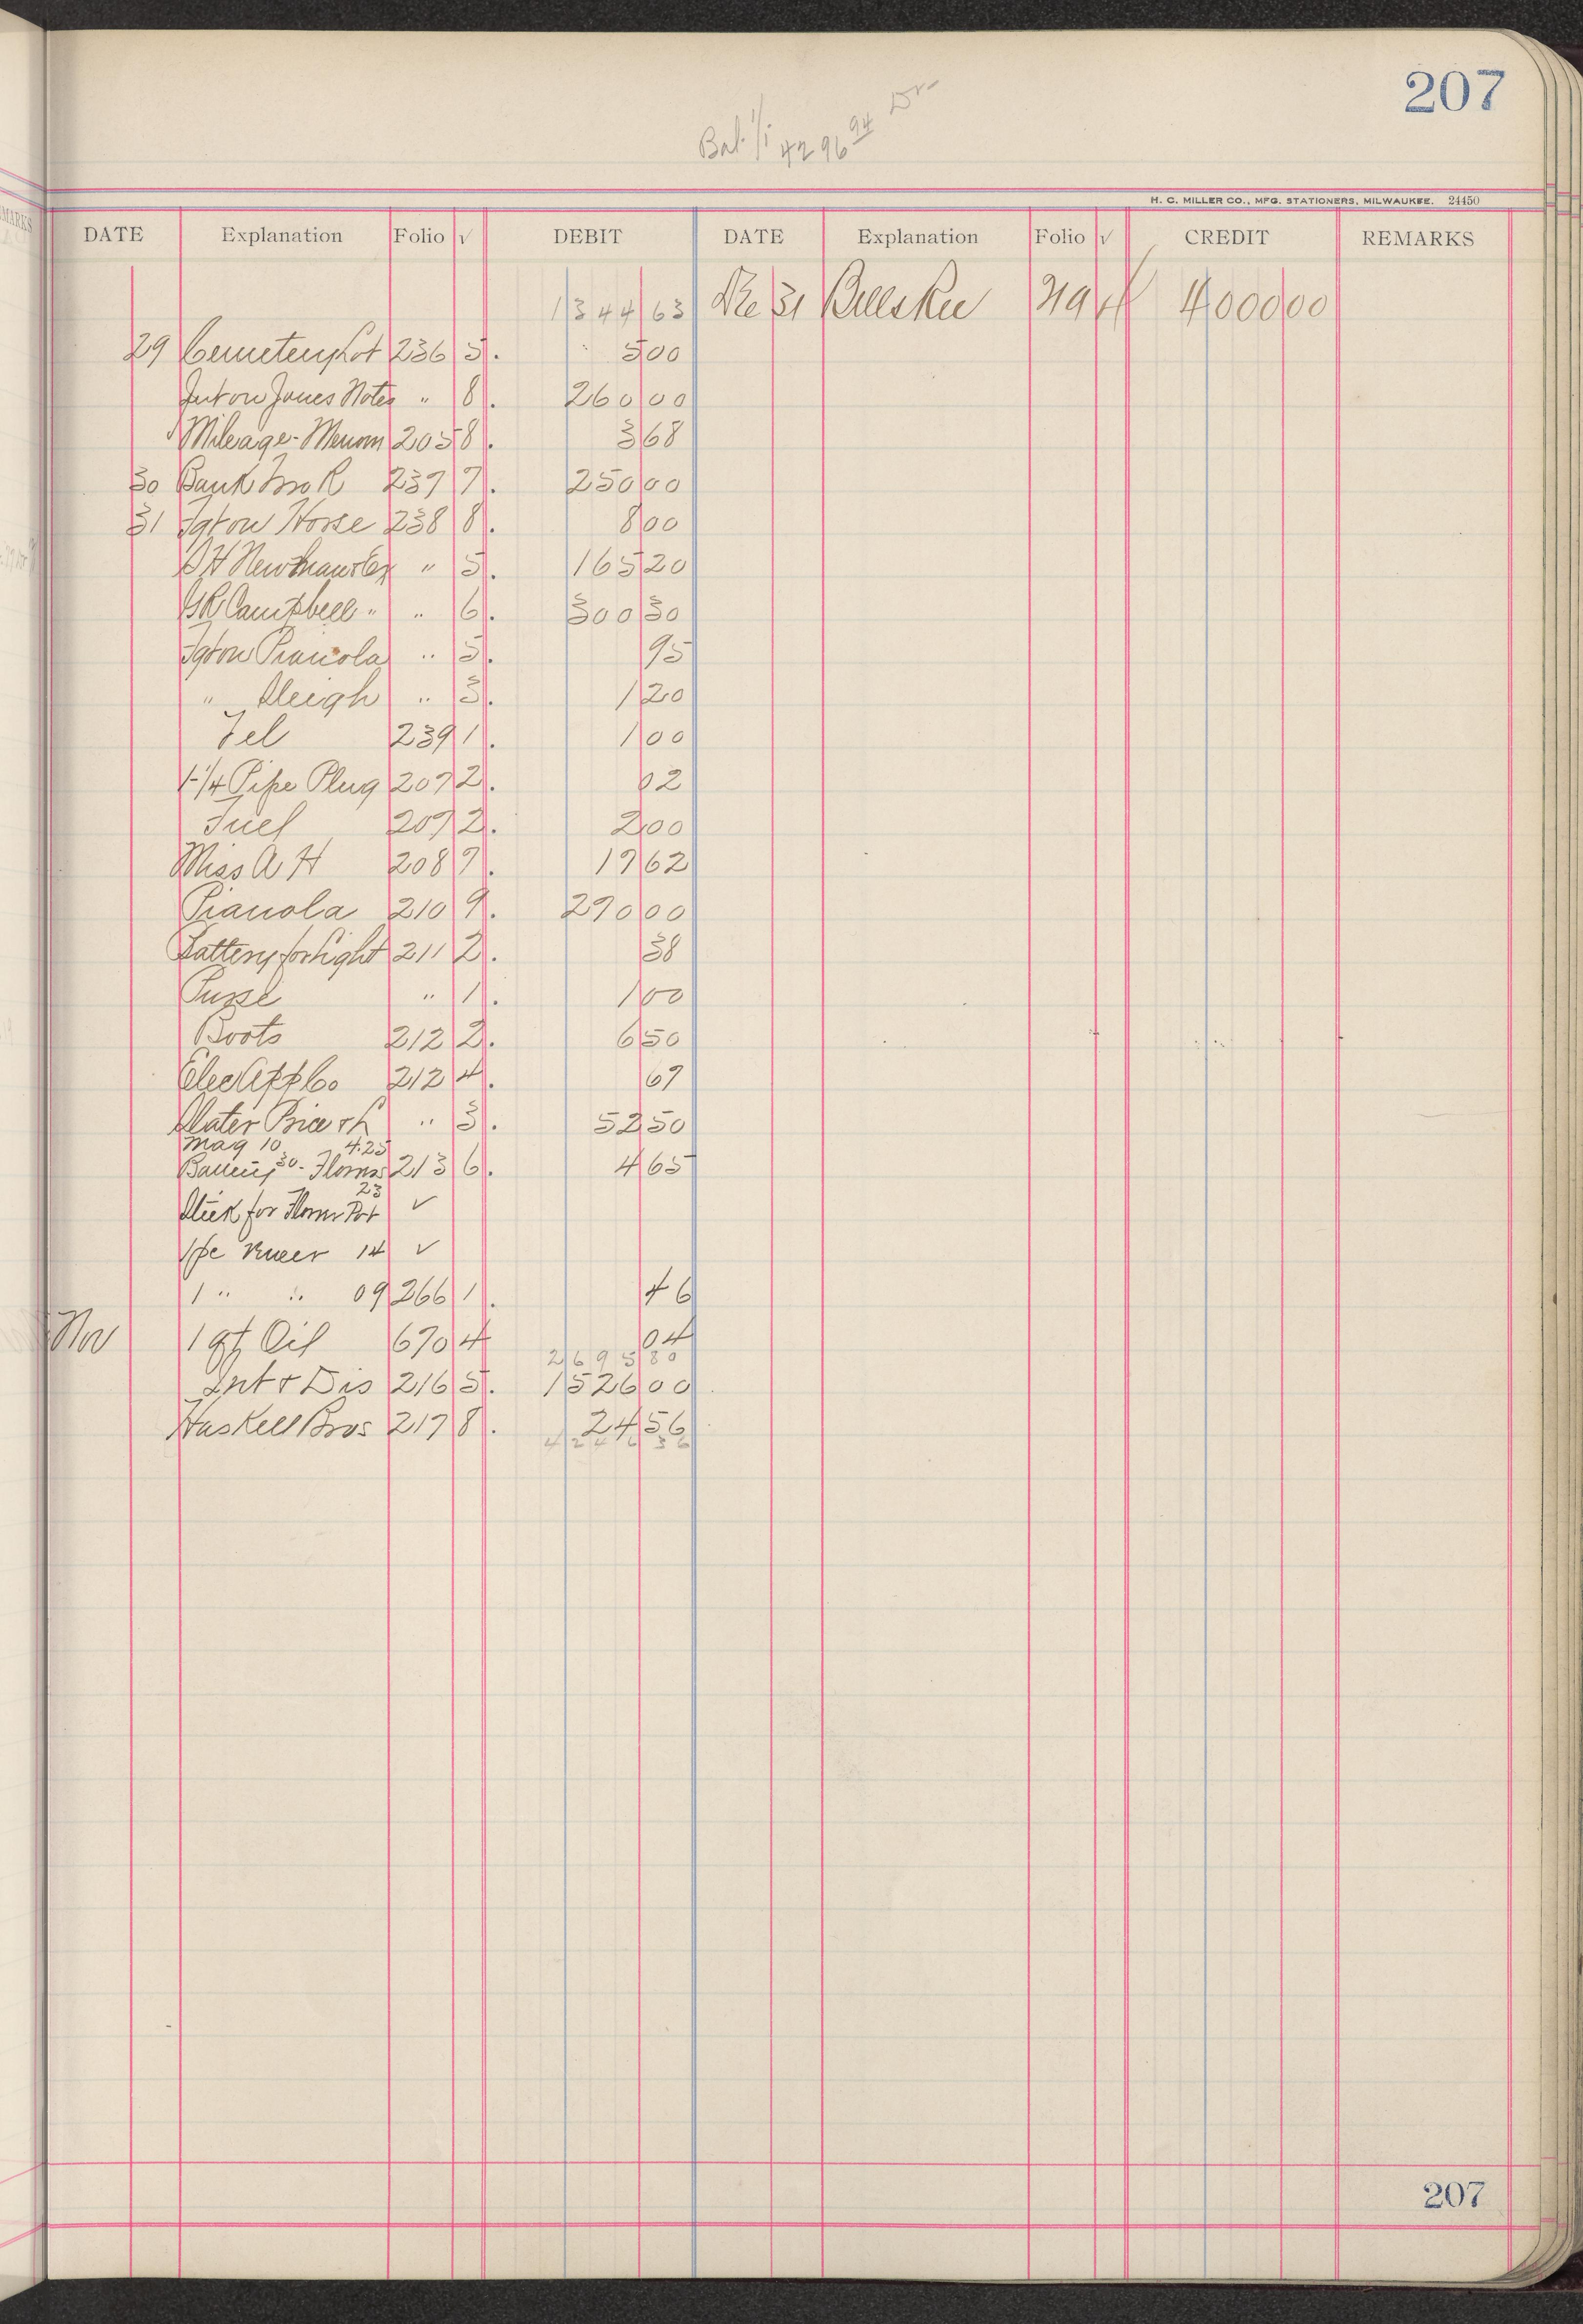 207
Bal. 1/1 4296 94 Dr
H. C. MILLER CO., MFG. STATIONERS, MILWAUKEE. 24450
DATE Explanation Folio √ DEBIT DATE Explanation Folio √ CREDIT REMARKS
1344 63 31 219 4 4000 00
29 Cemetery Lot 236 5 5 00
Int on Jones Notes " 8 260 00
Mileage 205 8 3 68
30 Bank 237 7 250 00
31 Horse 238 8 8 00
" 5 165 20
Campbell " " 6 300 30
Pianola " 5 95
" Sleigh " 3 1 20
Tel 239 1 1 00
1-1/4 Pipe Plug 207 2 02
Fuel 207 2 2 00
Miss A H 208 7 17 62
Pianola 210 9 270 00
Battery for Light 211 2 38
" 1 1 00
Boots 212 2 6 50
Elec App Co 212 4 67
Slater " 3 52 50
Mag 10 4.25
30 - 213 6 4 65
23
for √
14 √
1 " " 09 266 1 46
1 qt Oil 670 4 04
2695 80
Int & Dis 216 5 1526 00
Haskell Bros 217 8 24 56
4246 36
207